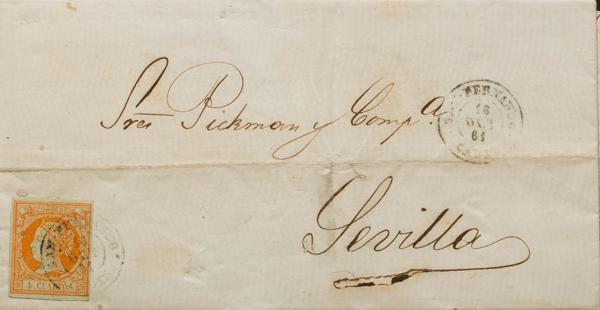 Sres Pickman y Compa
SAN FERNANDO
16
OCT
61
CADIZ
Sevilla
CORREOS
4 CUARTOS